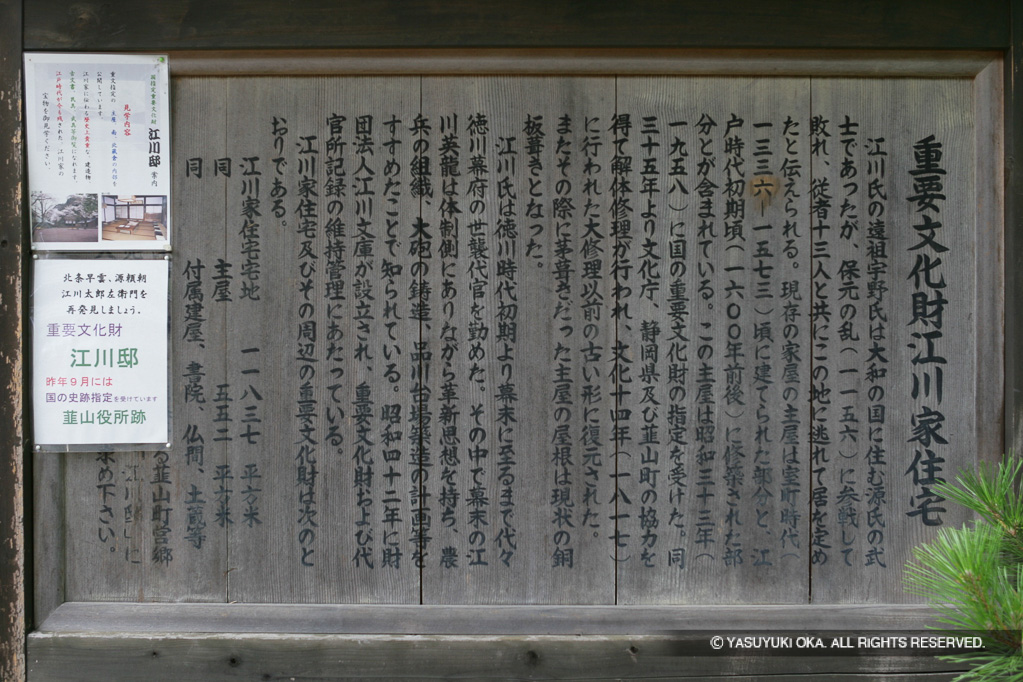 重要文化財江川家住宅
江川氏の遠祖宇野氏は大和の国に住む源氏の武
士であったが、保元の乱(一一五六)に参戦して
敗れ、従者十三人と共にこの地に逃れて居を定め
たと伝えられる。現存の家屋の主屋は室町時代(
一三三六―一五七三)頃に建てられた部分と、江
戸時代初期頃(一六〇〇年前後)に修築された部
分とが含まれている。この主屋は昭和三十三年(
一九五八)に国の重要文化財の指定を受けた。同
三十五年より文化庁、静岡県及び韮山町の協力を
得て解体修理が行われ、文化十四年(一八一七)
に行われた大修理以前の古い形に復元された。
またその際に茅葺きだった主屋の屋根は現状の銅
板葺きとなった。
江川氏は徳川時代初期より幕末に至るまで代々
徳川幕府の世襲代官を勤めた。その中で幕末の江
川英龍は体制側にありながら革新思想を持ち、農
兵の組織、大砲の鋳造、品川台場築造の計画等を
すすめたことで知られている。昭和四十二年に財
団法人江川文庫が設立され、重要文化財および代
官所記録の維持管理にあたっている。
江川家住宅及びその周辺の重要文化財は次のと
おりである。
江川家住宅宅地 一一八三七 平方米
同 主屋 五五二 平方米
同 付属建屋、書院、仏間、土蔵等
る韮山町宮郷
求め下さい。
国指定重要文化財 江川邸 案内
見学内容
重文指定の 主屋、南、北蔵倉の内部を
公開しています。
江川家に伝わる歴史上貴重な、建造物
古文書、民具、武具等御覧になれます
江戸時代が今も残された、江川家の
宝物を御見学ください。
北条早雲、源頼朝
江川太郎左衛門を
再発見しましょう。
重要文化財
江川邸
昨年9月には
国の史跡指定を受けています
韮山役所跡
© YASUYUKI OKA. ALL RIGHTS RESERVED.